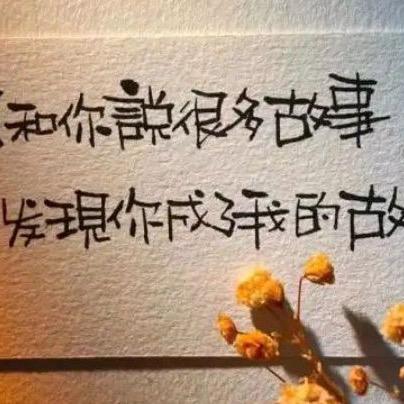 和你說很多故事
发現你成了我的故